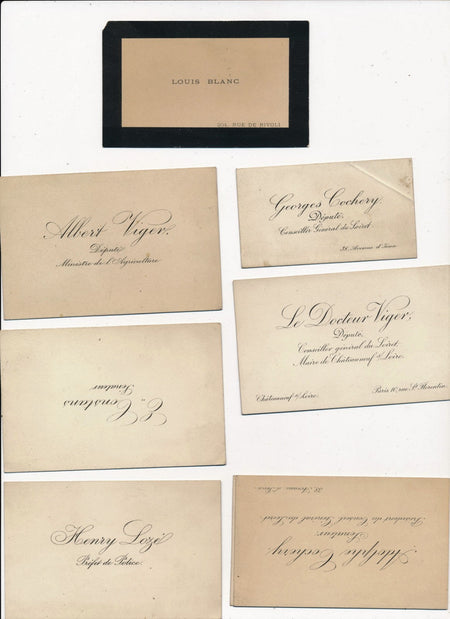 LOUIS BLANC
204, RUE DE RIVOLI
Albert Viger,
Député
Ministre de l'Agriculture
Georges Cochery,
Député,
Conseiller Général du Loiret
38, Avenue d'Iéna
Le Docteur Viger,
Député,
Conseiller général du Loiret,
Maire de Châteauneuf s/Loire.
Châteauneuf s/Loire.
Paris 10, rue St Florentin
E. Constans
Sénateur
Henry Lozé
Préfet de Police.
Adolphe Cochery,
Sénateur
Président du Conseil Général du Loiret.
38, Avenue d'Iéna.